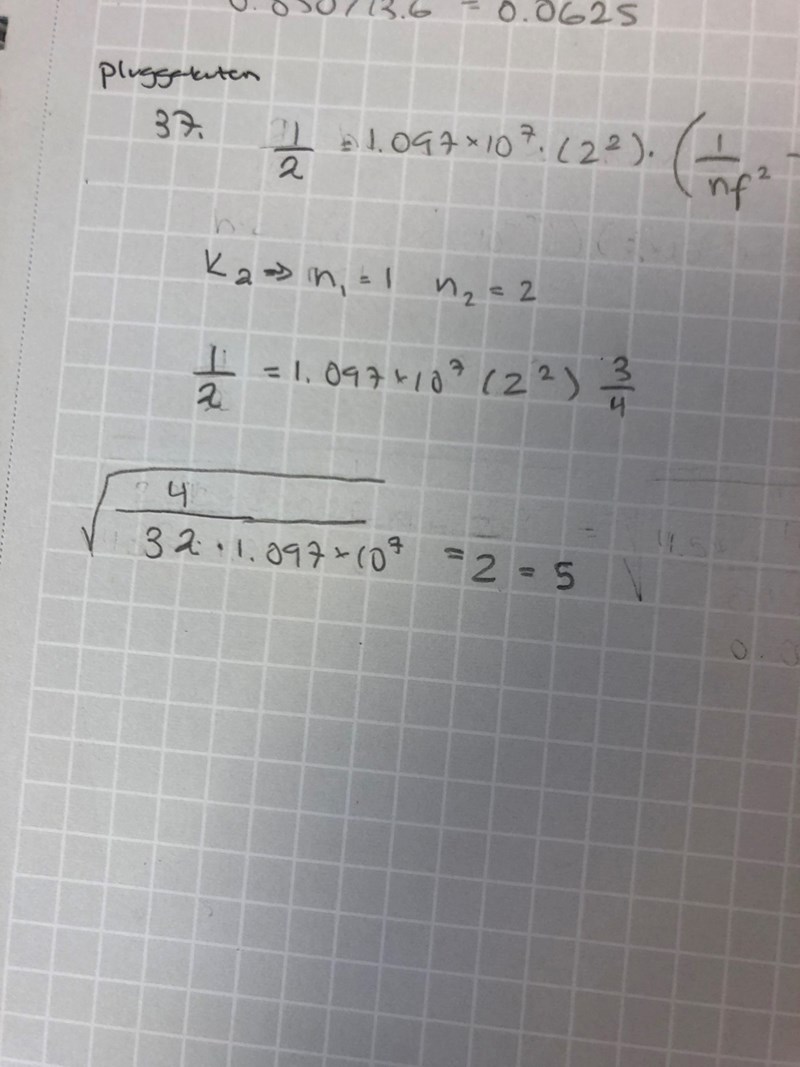 0.850/13.6 = 0.0625
pluggakuten
37. 1/2 = 1.097×10⁷·(2²)·(1/nf² -
K2 ⇒ n₁ = 1 n₂ = 2
1/2 = 1.097×10⁷ (2²) 3/4
√(4/(32·1.097×10⁷)) = 2 = 5